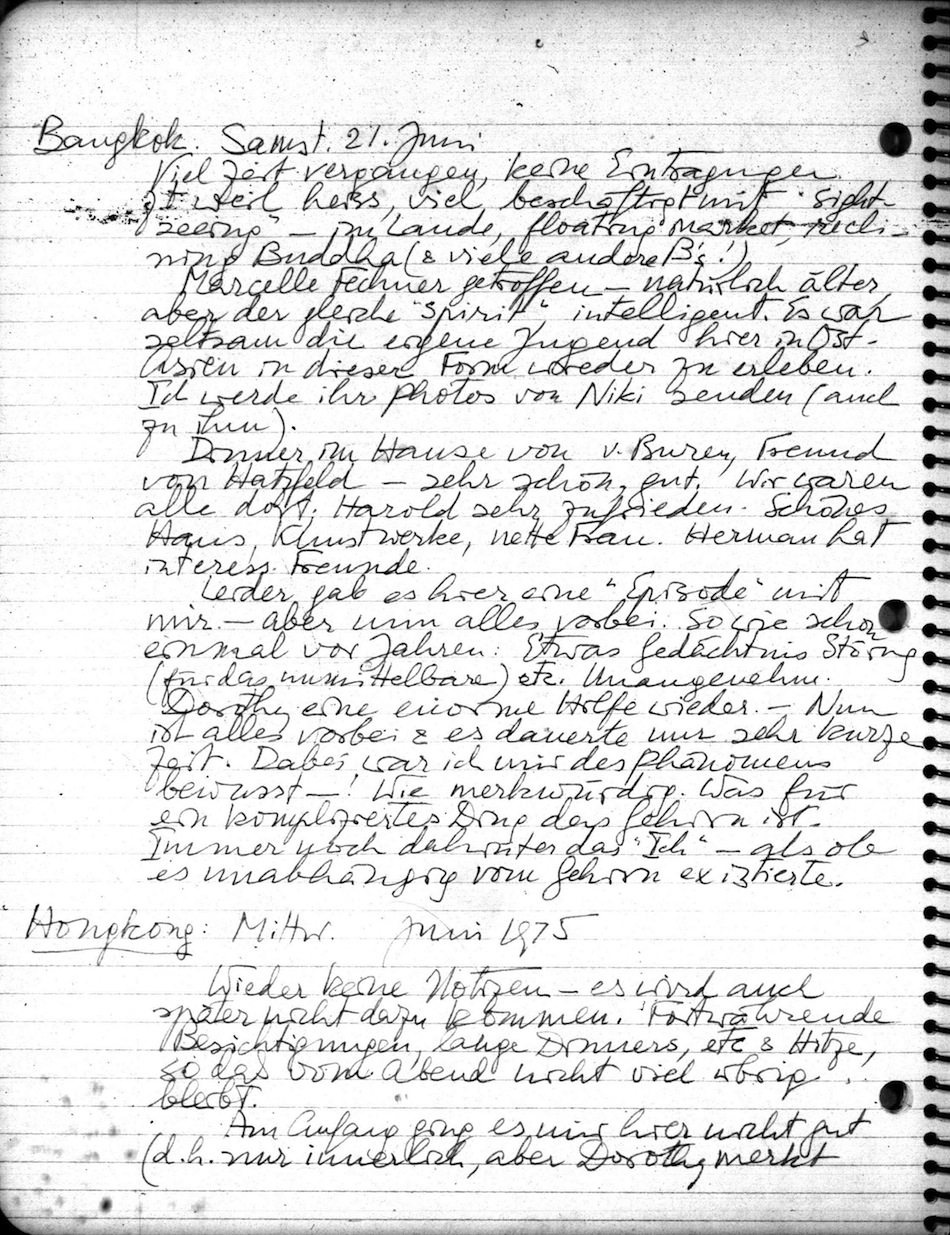 Bangkok. Samst. 21. Juni
Viel Zeit vergangen, keine Eintragungen
weil heiss, viel beschäftigt mit "Sight-
seeing" – im Lande, floating market, recli-
ning Buddha (& viele andere B's!)
Marcelle Fechner getroffen – natürlich älter,
aber der gleiche "Spirit" intelligent. Es war
seltsam die eigene Jugend hier in Ost-
Asien in dieser Form wieder zu erleben.
Ich werde ihr Photos von Niki senden (auch
zu ihm).
Dinner im Hause von v. Buren, Freund
von Hatzfeld – sehr schön, gut. Wir waren
alle dort. Harold sehr zufrieden. Schönes
Haus, Kunstwerke, nette Frau. Herman hat
interess. Freunde.
Leider gab es hier eine "Episode" mit
mir – aber nun alles vorbei. So wie schon
einmal vor Jahren: Etwas Gedächtnis Störung
(für das unmittelbare) etc. Unangenehm.
Dorothy eine enorme Hilfe wieder. – Nun
ist alles vorbei & es dauerte nur sehr kurze
Zeit. Dabei war ich mir des Phänomens
bewusst –! Wie merkwürdig. Was für
ein kompliziertes Ding das Gehirn ist.
Immer noch dahinter das "Ich" – als ob
es unabhängig vom Gehirn existierte.
Hongkong: Mittw. Juni 1975
Wieder keine Notizen – es wird auch
später nicht dazu kommen. Fortwährende
Besichtigungen, lange Dinners, etc & Hitze,
so das vom Abend nicht viel übrig
bleibt.
Am Anfang ging es mir hier nicht gut
(d.h. nur innerlich, aber Dorothy merkt